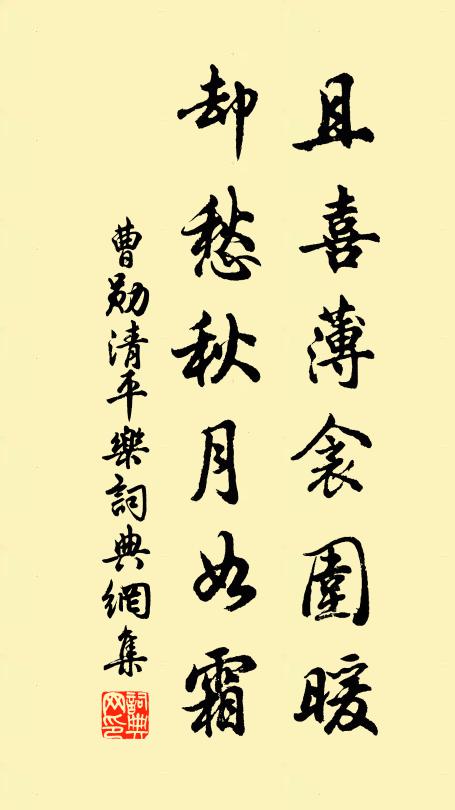 且喜薄衾圍暖
却愁秋月如霜
曹勛清平樂詞典網集
詞典网印